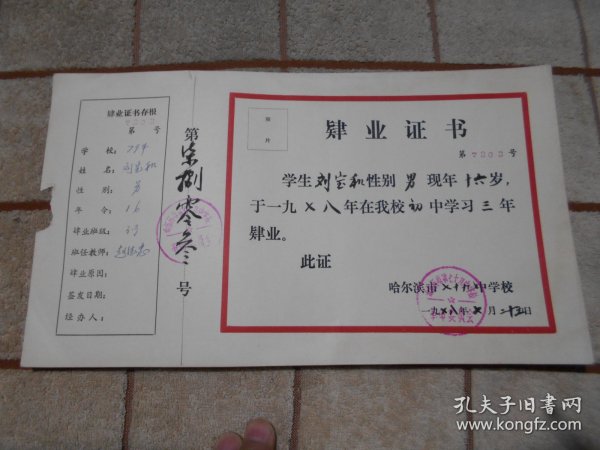 肄业证书存根
第 7803 号
学 校：79中
姓 名：刘宝和
性 别：男
年 令：16
肄业班级：
班任教师：
肄业原因：
签发日期：
经办人：
第柒捌零叁号
相片
肄业证书
第 7803 号
学生刘宝和性别 男 现年十六岁，
于一九七八年在我校初中学习三年
肄业。
此证
哈尔滨市七十九中学校
一九七八年七月二十五日
孔夫子旧书网
www.kongfz.com